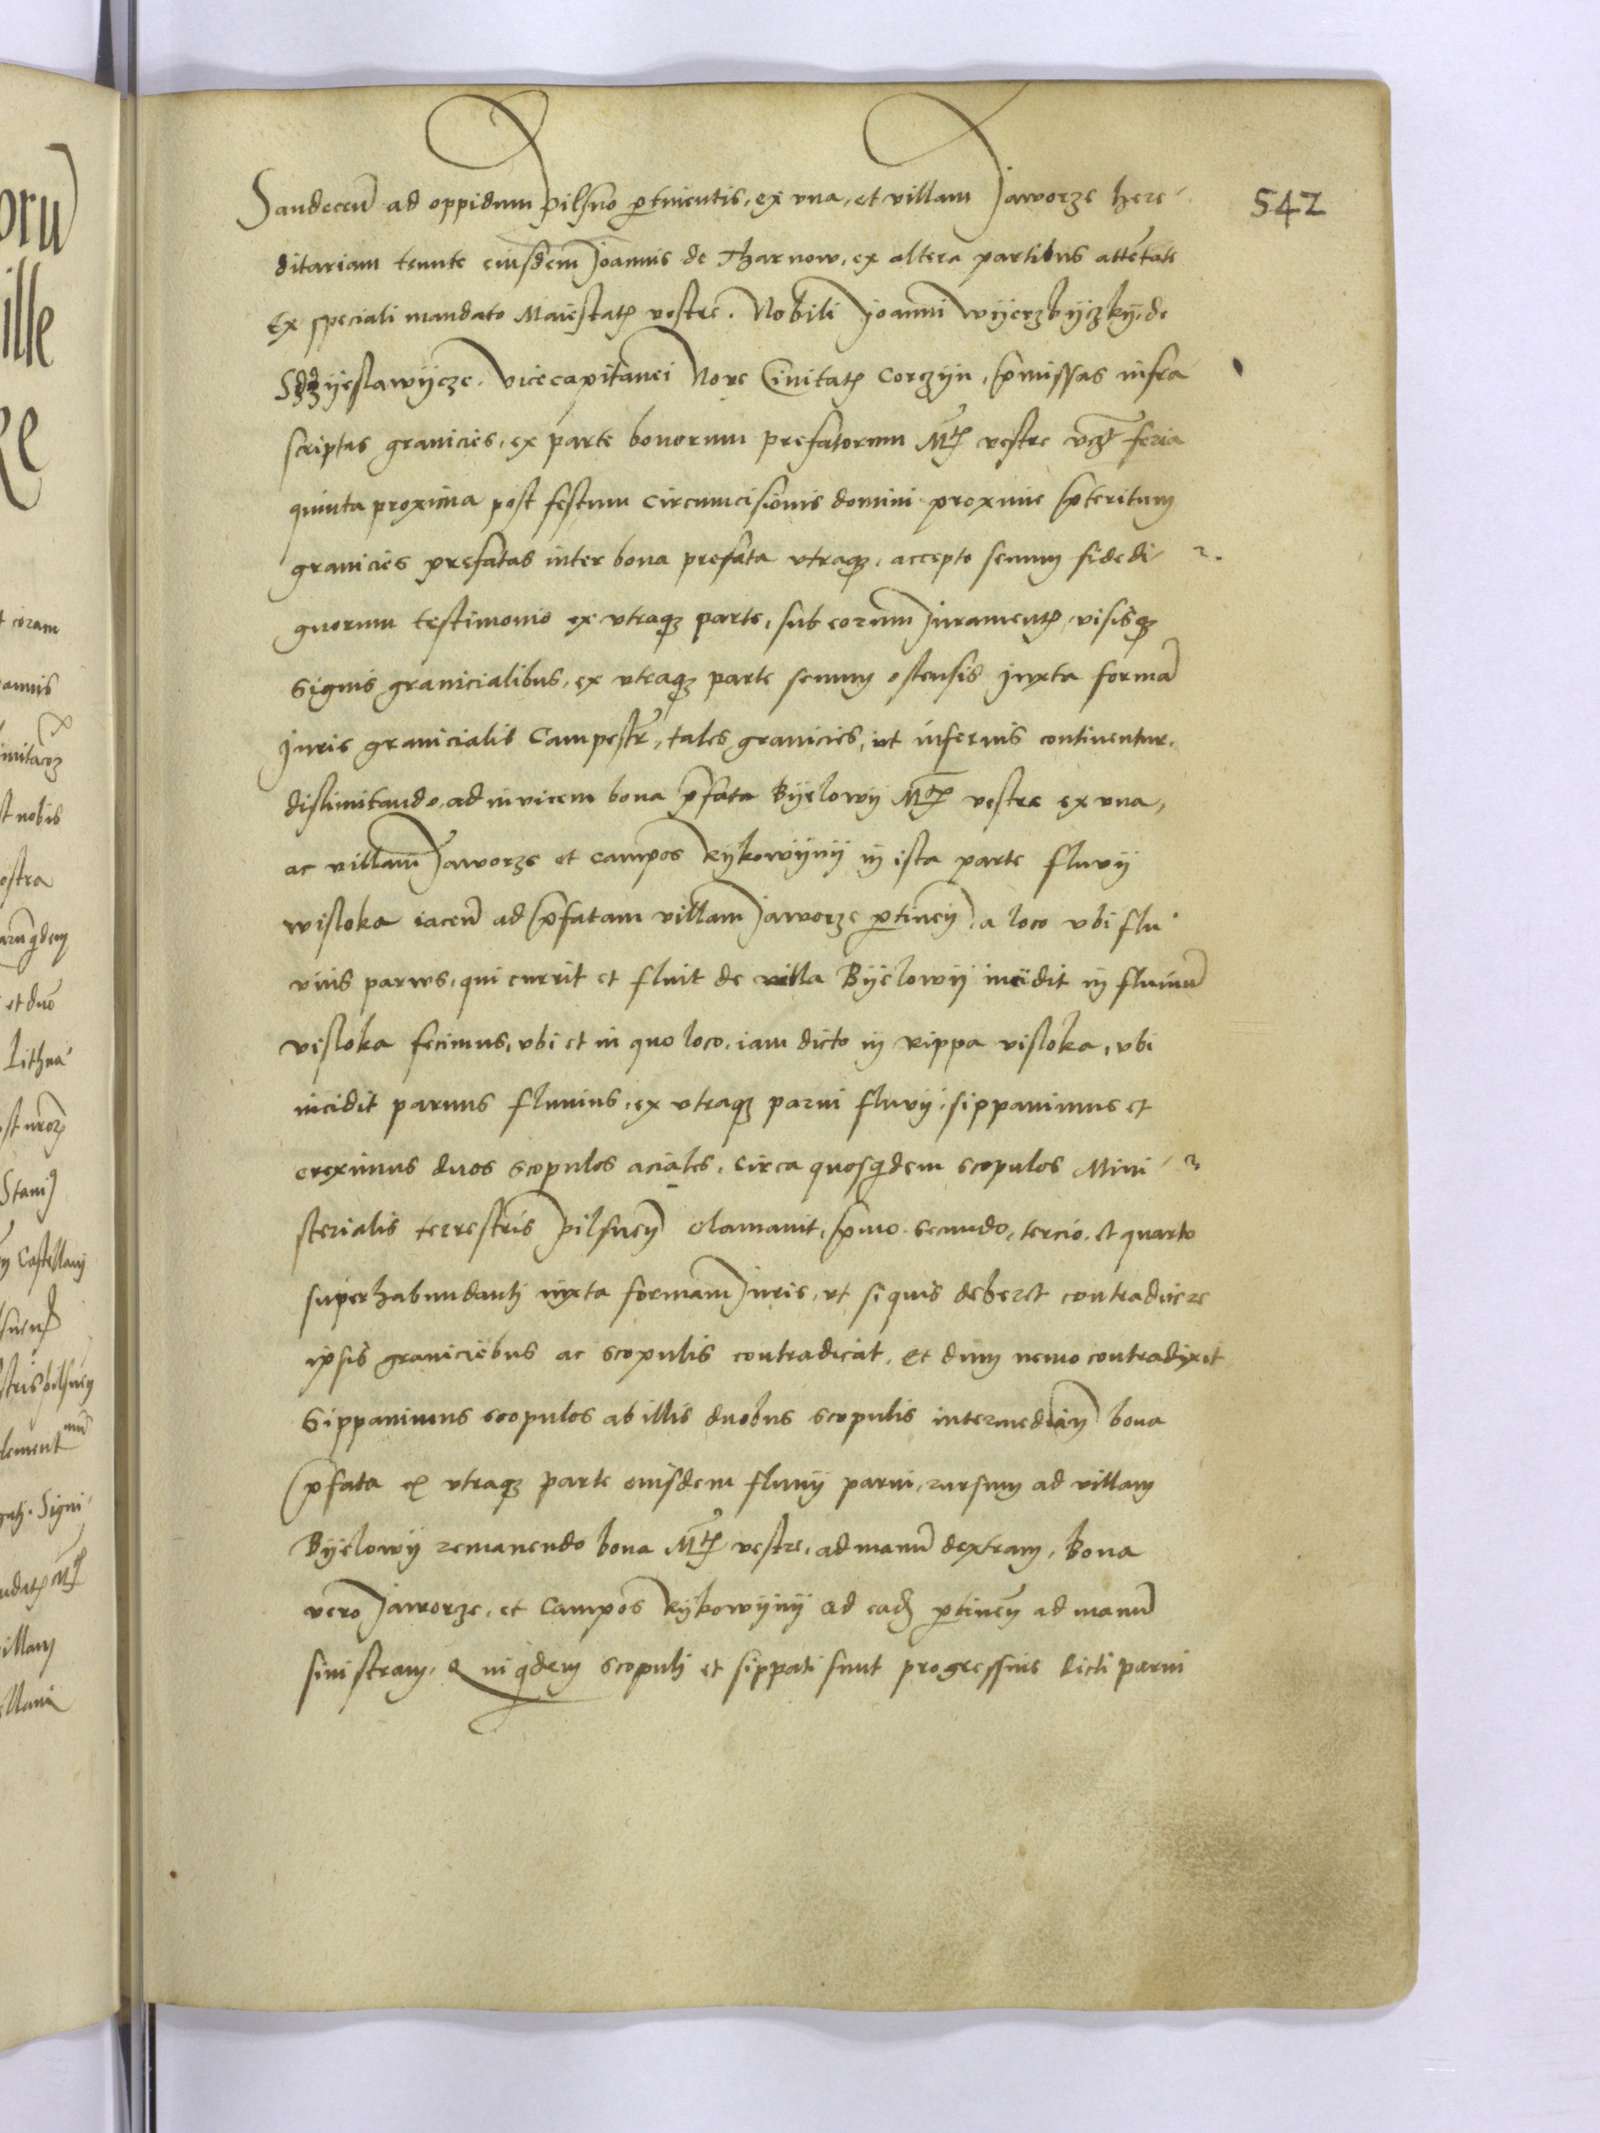 542
Sandeceñ ad oppidum pilsno ptinentis, ex vna, et villam Jaworze here-
ditariam tenute eiusdem Joannis de Tharnow, ex altera partibus attētate
Ex speciali mandato Maiestatꝭ vestre. Nobili Joanni wÿerzbÿczkÿ de
vicecapitanei Nove Civitatꝭ Corczÿn, pmissas infra
scriptas granicies, ex parte bonorum prefatorum Mtꝭ vestre feria
quinta proxima post festum Circumcisionis domini proxime pteritum
granicies prefatas inter bona prefata vtraqꝫ, accepto senum fidedi-
gnorum testimonio ex vtraqꝫ parte, sub eorum Juramentꝭ, visisqꝫ
signis granicialibus, ex vtraqꝫ parte senum ostensis Juxta formā
Juris granicialis Campestr, tales granicies, ut inferius continentur.
dislimitando, ad invicem bona pfata Bÿelowÿ Mtꝭ vestre ex vna,
ac villam Jaworze et campos Rykowÿnÿ in ista parte fluvij
wisloka iaceñ ad pfatam villam Jaworze ptineñ, a loco vbi flu-
vius parvus, qui currit et fluit de villa Bÿelowÿ incidit in fluviū
visloka fecimus, vbi et in quo loco, iam dicto in rippa visloka, vbi
incidit parvus fluvius, ex vtraqꝫ parvi fluvij, sippavimus et
ereximus duos scopulos aciales, circa quosqdem scopulos Mini-
sterialis terrestris pilsneñ clamavit, pmo. secundo, tercio. et quarto
superhabundanti iuxta formam Juris, vt si quis deberet contradicere
ipsis graniciebus ac scopulis contradicat, et dum nemo contradixit
Sippavimus scopulos ab illis duobus scopulis intermedian bona
pfata ex vtraqꝫ parte eiusdem fluvij parvi, rursum ad villam
Bÿelowÿ remanendo bona Mtꝭ vestre, ad manū dextram, bona
vero Jaworze, et Campos Rykowÿnÿ ad eadꝫ ptineñ ad manū
sinistram, Qui qdem scopuli et sippati sunt progressive dicti parvi